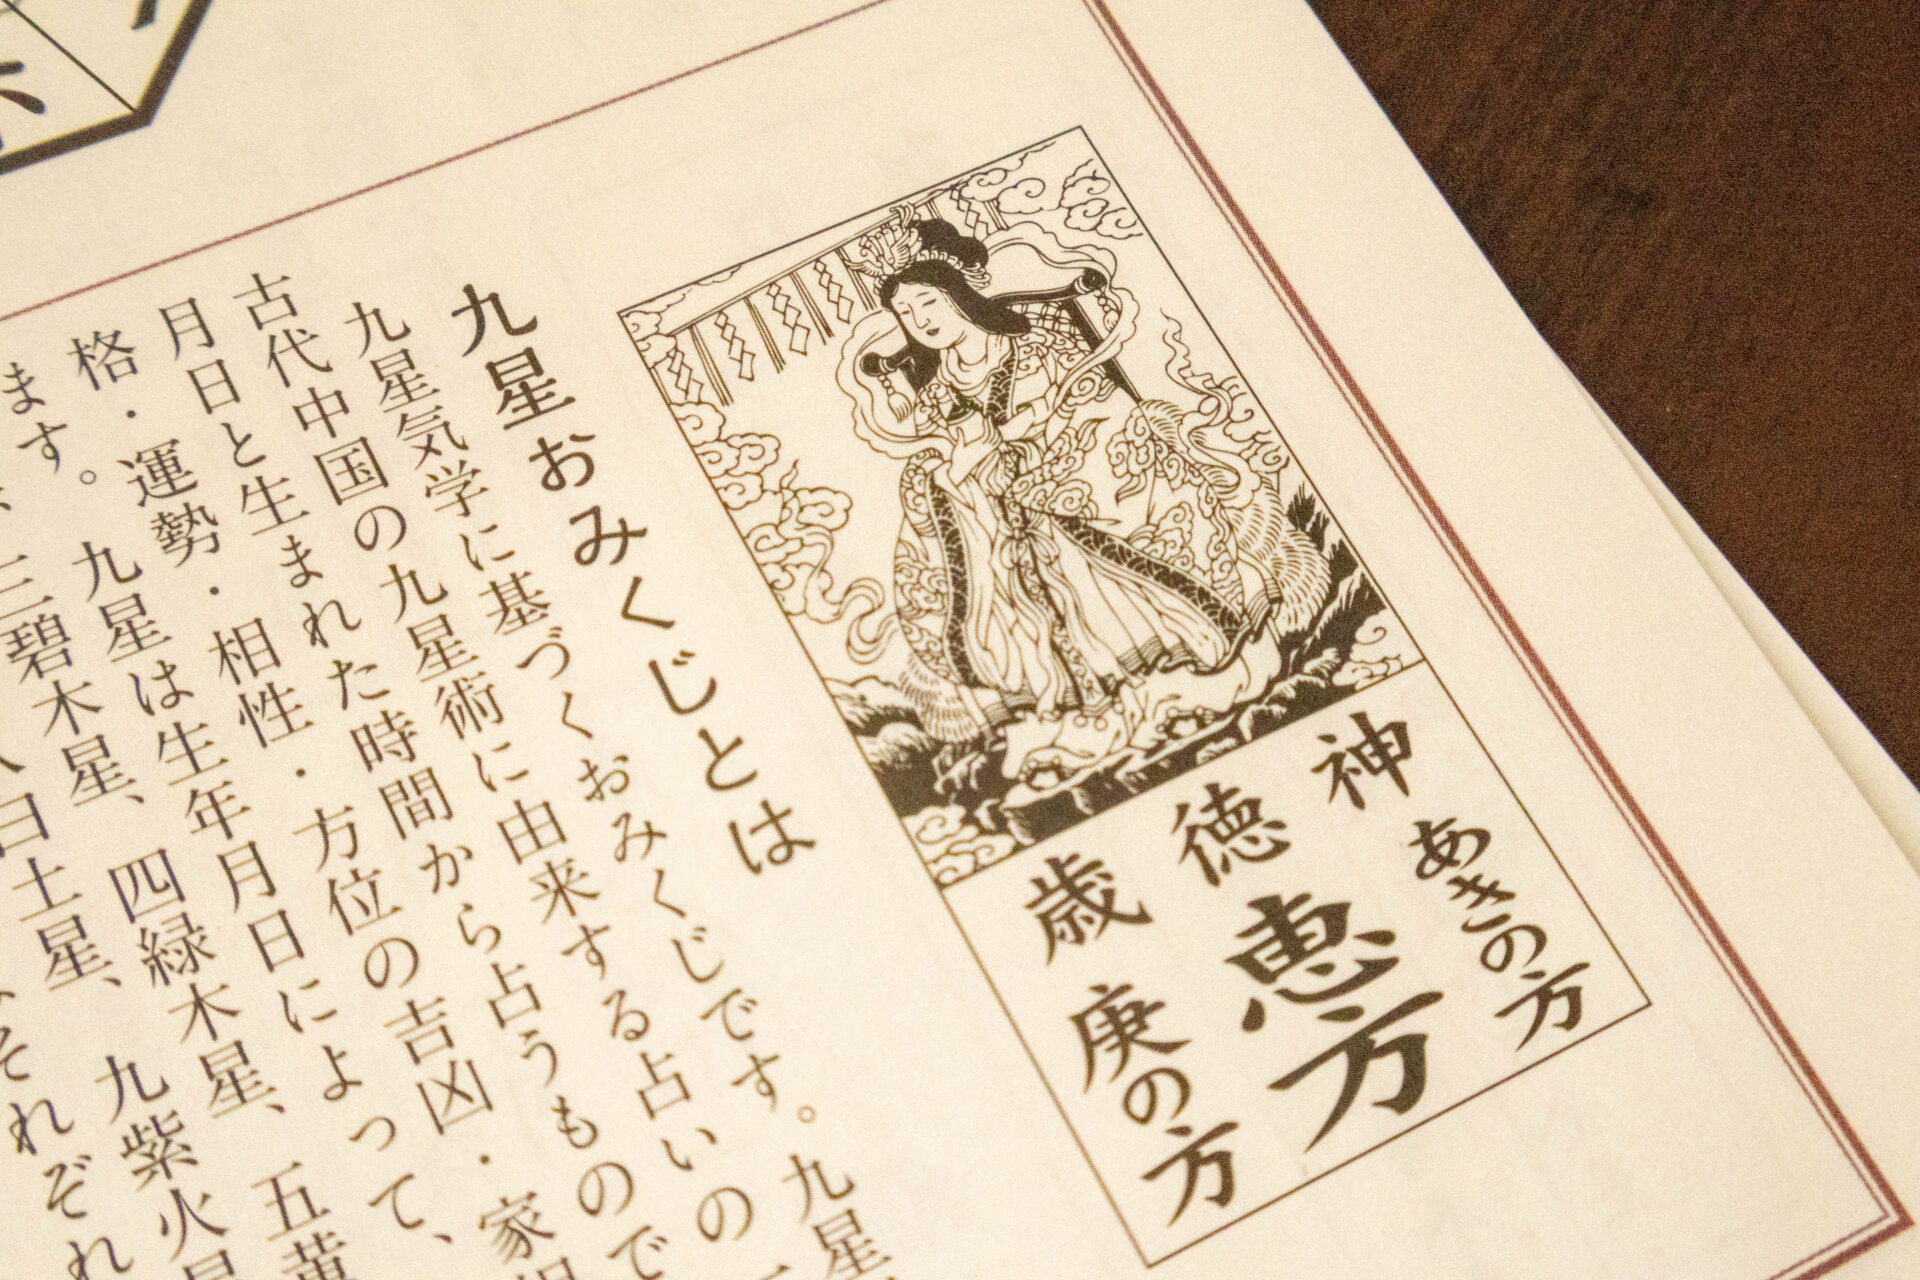 歳徳神
あきの方
恵方
庚の方
九星おみくじとは
九星気学に基づくおみくじです。九星
古代中国の九星術に由来する占いの
月日と生まれた時間から占うもので
格・運勢・相性・方位の吉凶・家
ます。九星は生年月日によって、
、三碧木星、四緑木星、五黄
八白土星、九紫火星
それぞれ